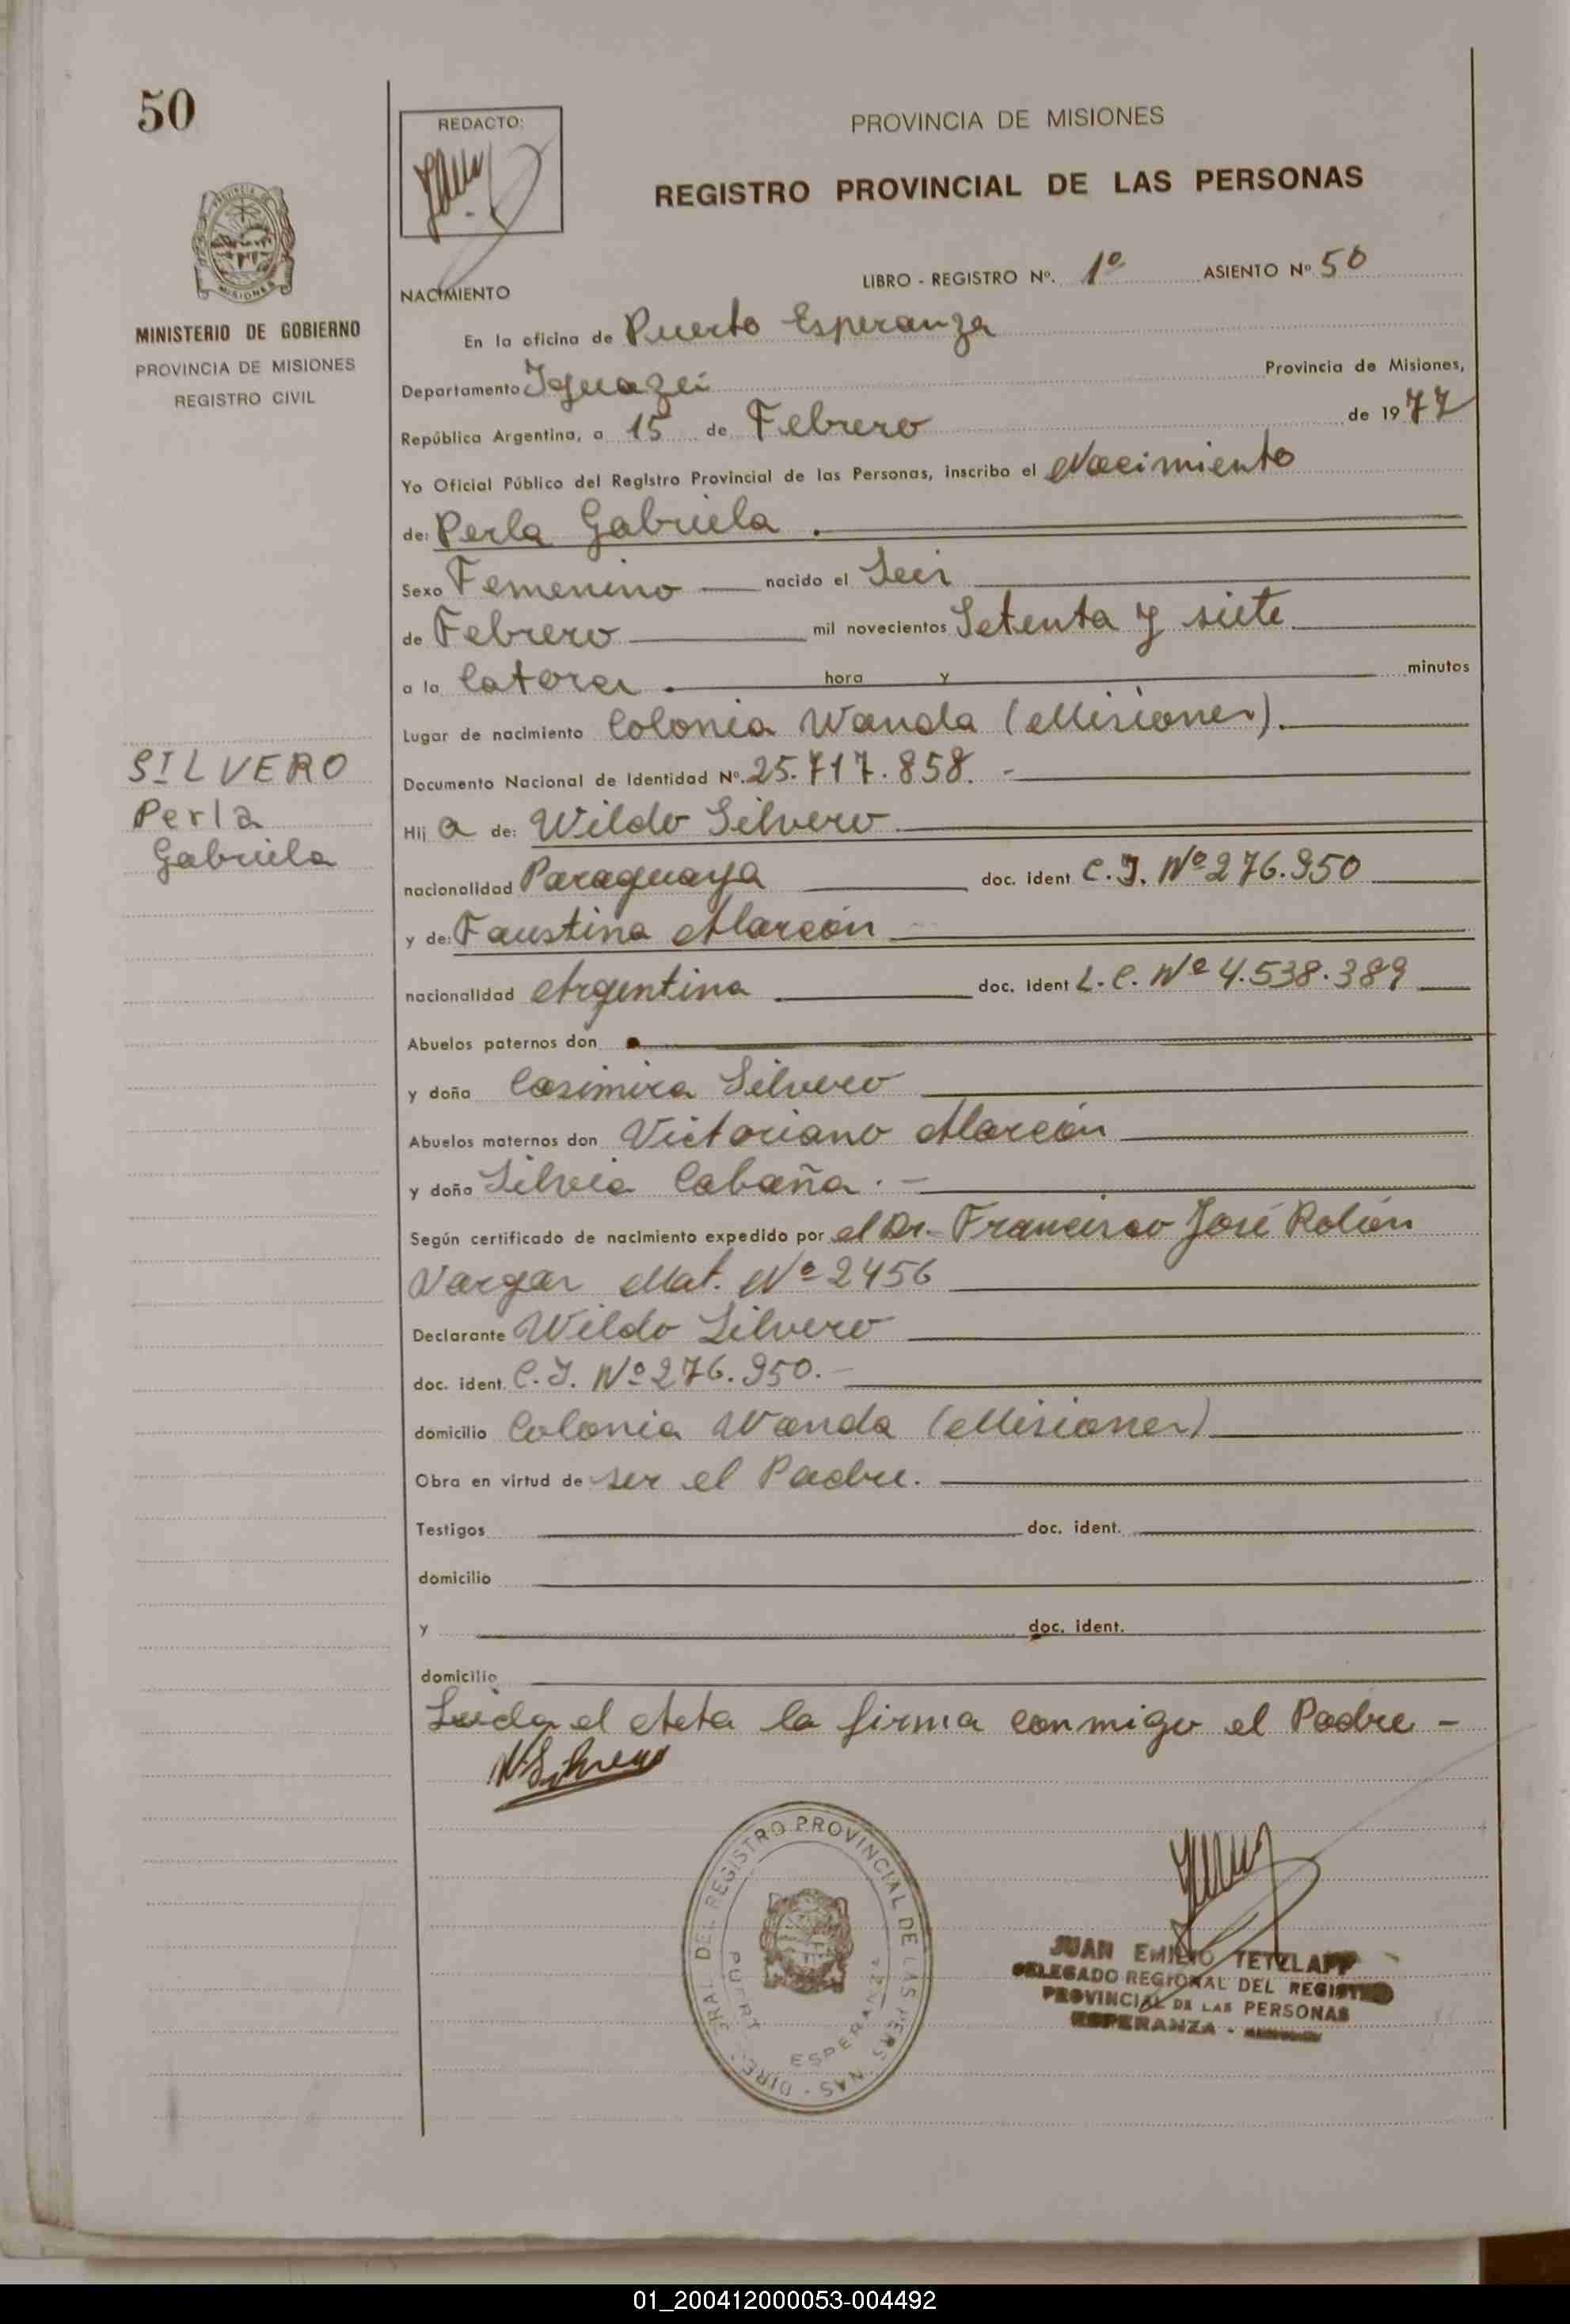 50
REDACTO:
PROVINCIA DE MISIONES
REGISTRO PROVINCIAL DE LAS PERSONAS
LIBRO - REGISTRO Nº. 1º ASIENTO Nº 50
NACIMIENTO
MINISTERIO DE GOBIERNO
PROVINCIA DE MISIONES
REGISTRO CIVIL
En la oficina de Puerto Esperanza
Departamento Iguazú Provincia de Misiones,
República Argentina, a 15 de Febrero de 1977
Yo Oficial Público del Registro Provincial de las Personas, inscribo el Nacimiento
de: Perla Gabriela.
Sexo Femenino nacido el Seis
de Febrero mil novecientos Setenta y siete
a la Catorce. hora y minutos
Lugar de nacimiento Colonia Wanda (Misiones).
SILVERO
Perla
Gabriela
Documento Nacional de Identidad Nº. 25.717.858. -
Hij a de: Wildo Silvero
nacionalidad Paraguaya doc. ident C.I. Nº 276.950
y de: Faustina Alarcón
nacionalidad Argentina doc. ident L.C. Nº 4.538.389
Abuelos paternos don
y doña Casimira Silvero
Abuelos maternos don Victoriano Alarcón
y doña Silvia Cabaña. -
Según certificado de nacimiento expedido por el Dr. Francisco José Rolón
Vargas Mat. Nº 2456
Declarante Wildo Silvero
doc. ident. C.I. Nº 276.950. -
domicilio Colonia Wanda (Misiones)
Obra en virtud de ser el Padre.
Testigos doc. ident.
domicilio
y doc. ident.
domicilio
Leida el Acta la firma conmigo el Padre -
W. Silvero
REGISTRO PROVINCIAL DE LAS PERS NAS
JUAN EMILIO TETZLAFF
DELEGADO REGIONAL DEL REGISTRO
PROVINCIAL DE LAS PERSONAS
ESPERANZA -
01_200412000053-004492